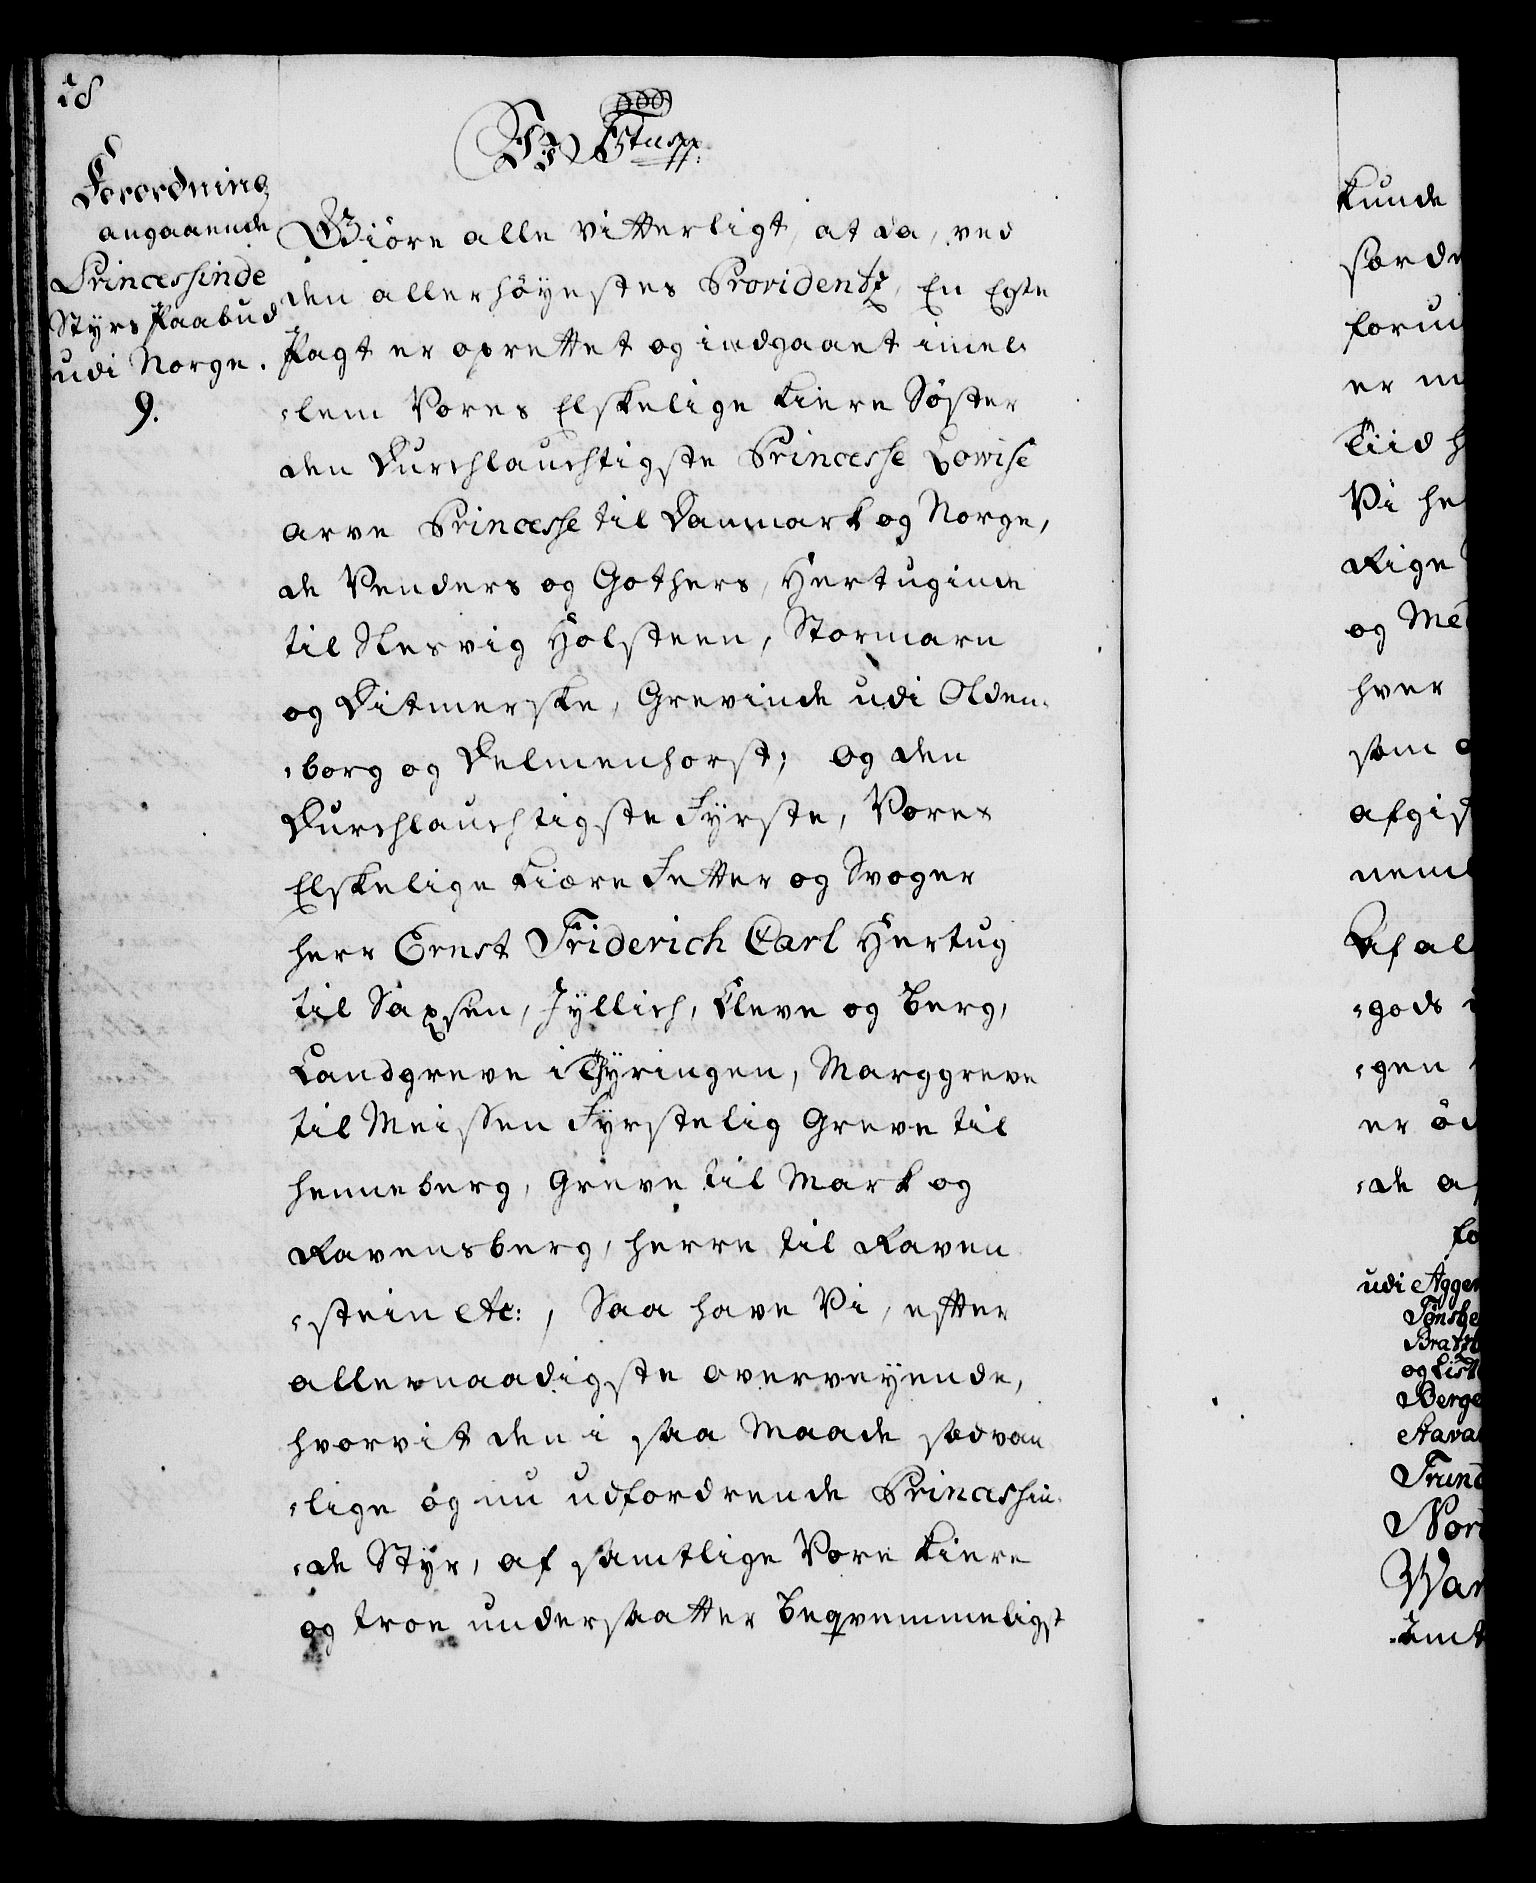 18
Forordning
angaaende
Princessinde
Styrs Paabud
udi Norge.
9.
Giöre alle vitterligt, at da, ved
den allerhöyestes Providentz, En Egte
Pagt er oprettet og indgaaet imel-
lem Vores Elskelige kiere Söster
den Durchlauchtigste Princesse Lowise
arve Princesse til Danmark og Norge,
de Venders og Gothers, Hertuginde
til Slesvig Holsteen, Stormarn
og Ditmersken, Grevinde udi Olden-
borg og Delmenhorst; og den
Durchlauchtigste Fyrste, Vores
Elskelige kiære Fetter og Svoger
herr Ernst Friderich Carl Hertug
til Saxsen, Jyllich, Cleve og Berg,
Landgreve i Thyringen, Marggreve
til Meissen Fyrstelig Greve til
Henneberg, Greve til Mark og
Ravensberg, herre til Raven
-stein etc:, Saa have Vi, efter
allernaadigste overveyende,
hvorvit den i saa Maade sædvan
-lige og nu udfordrende Princessin-
-de Styr, af samtlige Vore kiere
og troe undersaatter beqvemmeligst
kunde
er
Tiid
Vi
Rige
og
hver
som
af al
-gods
-gen
er
-de
udi
og